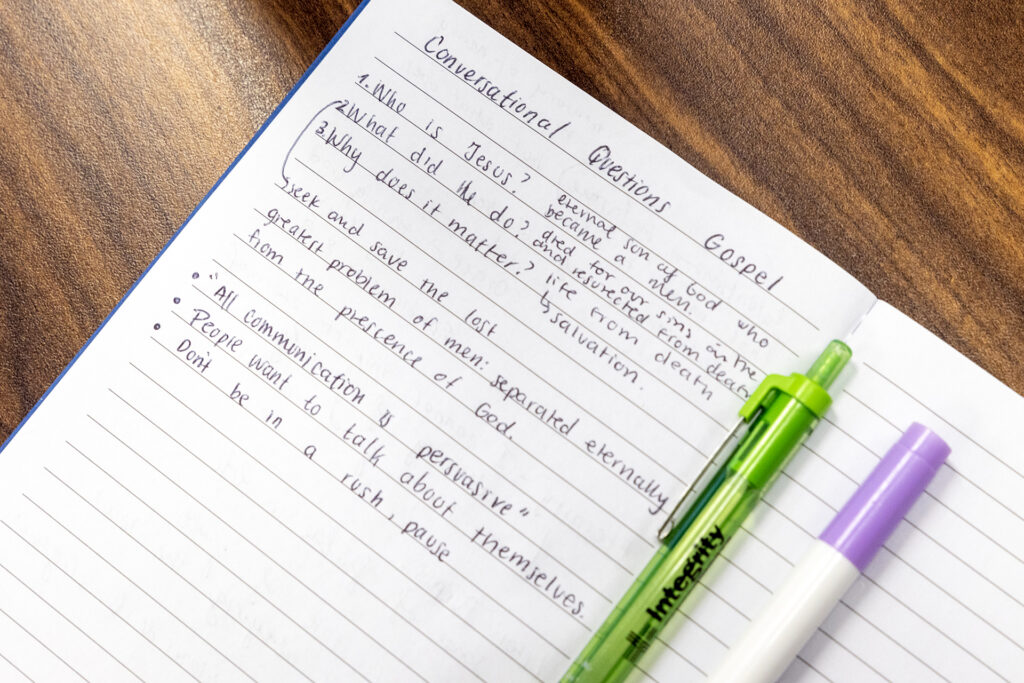 Conversational Questions Gospel
1. Who is Jesus? eternal son of God who
became a men.
2. What did he do? died for our sins, the
and resurected from death
3. Why does it matter? life from death
↳ salvation.
seek and save the lost
greatest problem of men: separated eternally
from the prescence of God.
• "All communication is persuasive"
• People want to talk about themselves.
• Don't be in a rush, pause
Integrity